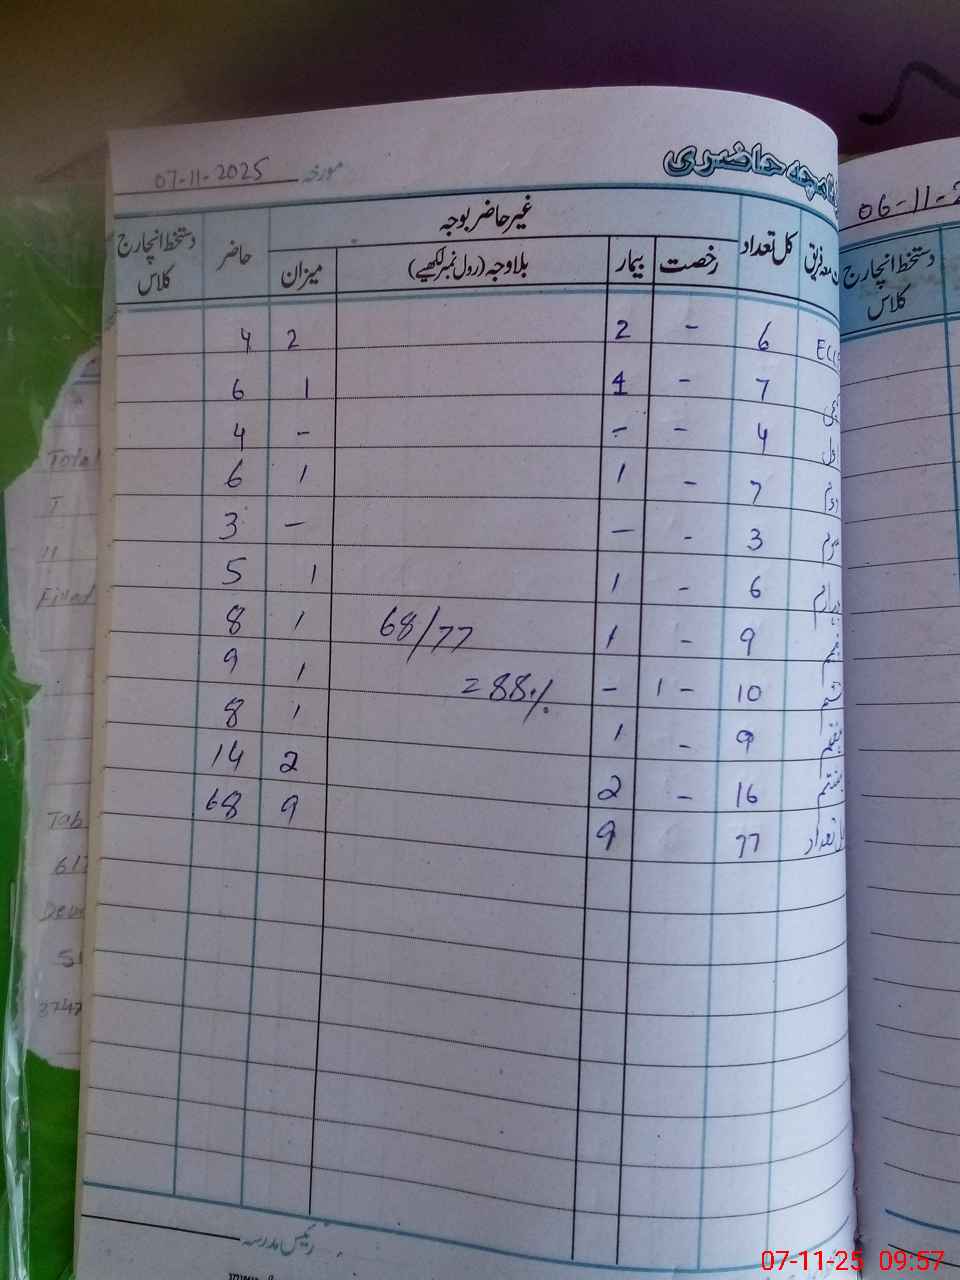 حاضری
مورخہ 07-11-2025
کل تعداد غیر حاضر بوجہ حاضر دستخط انچارج کلاس
رخصت بیمار بلاوجہ (رول نمبر لکھیے) میزان
6 - 2 2 4
7 - 1 1 6
4 - - - 4
دوئم 7 - 1 1 6
سوم 3 - - - 3
6 - 1 1 5
9 - 1 68/77 1 8
10 - 1 - =88% 1 9
ہفتم 9 - 1 1 8
ہشتم 16 - 2 2 14
کل تعداد 77 9 9 68
رئیس مدرسہ
06-11-2
دستخط انچارج
کلاس
Total
T
"
Tab
07-11-25 09:57